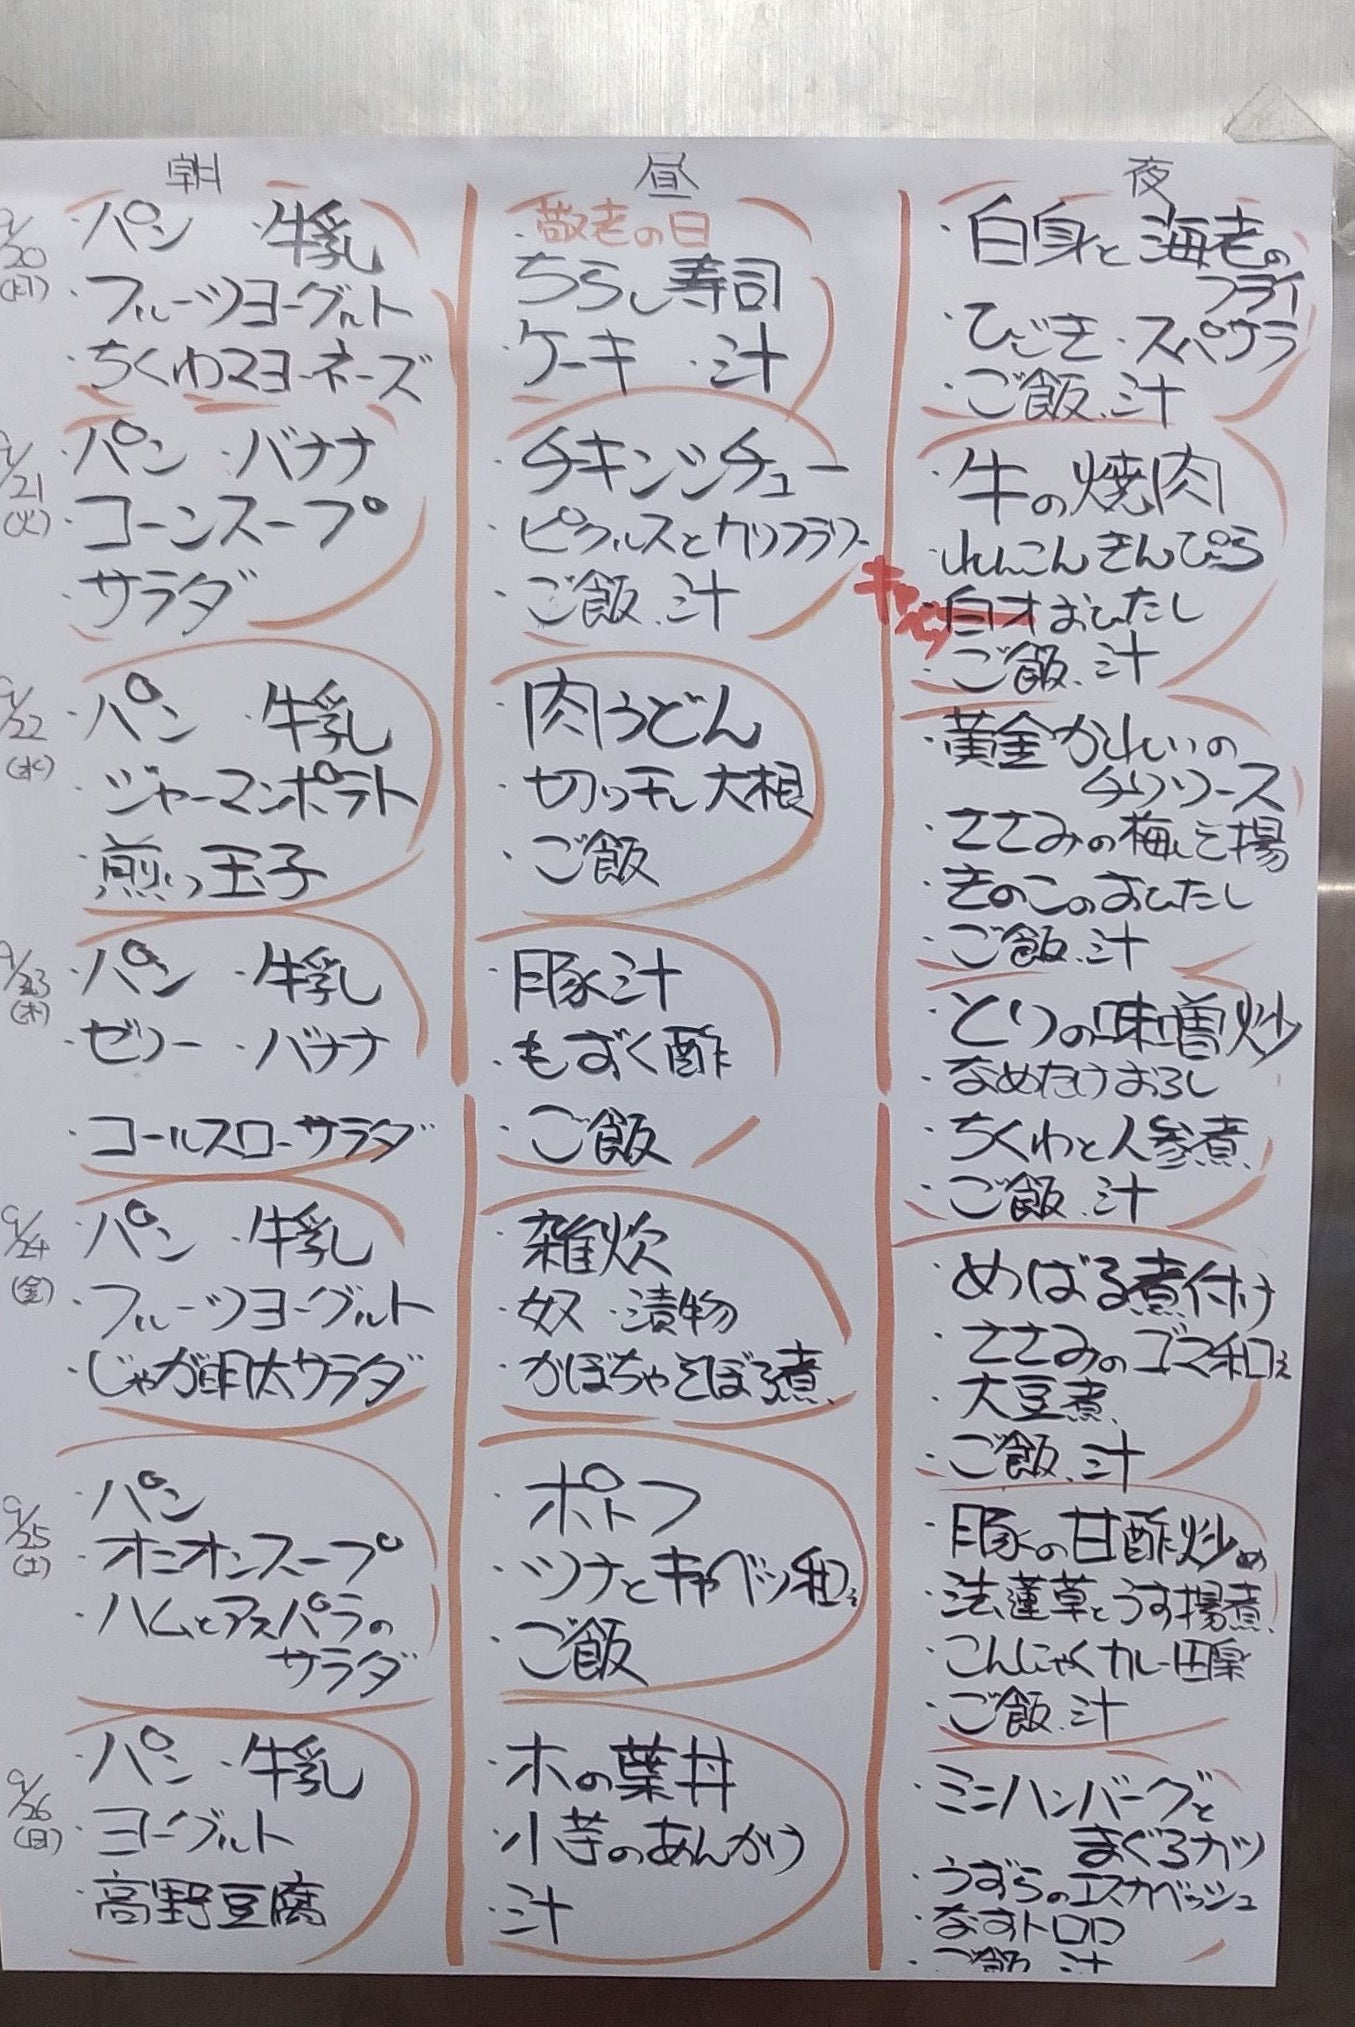 朝 昼 夜
9/20
(月)
・パン ・牛乳
・フルーツヨーグルト
・ちくわマヨネーズ
敬老の日
・ちらし寿司
・ケーキ ・汁
・白身と海老の
フライ
・ひじき ・スパサラ
・ご飯、汁
9/21
(火)
・パン ・バナナ
・コーンスープ
・サラダ
・チキンシチュー
・ピクルスとカリフラワー
・ご飯、汁
・牛の焼肉
・れんこんきんぴら
キャベツ
・白才おひたし
・ご飯、汁
9/22
(水)
・パン ・牛乳
・ジャーマンポテト
・煎り玉子
・肉うどん
・切り干し大根
・ご飯
・黄金かれいの
チリソース
・ささみの梅しそ揚
・きのこのおひたし
・ご飯、汁
9/23
(木)
・パン ・牛乳
・ゼリー ・バナナ
・コールスローサラダ
・豚汁
・もずく酢
・ご飯
・とりの味噌炒
・なめたけおろし
・ちくわと人参煮
・ご飯、汁
9/24
(金)
・パン ・牛乳
・フルーツヨーグルト
・じゃが明太サラダ
・雑炊
・奴 ・漬物
・かぼちゃそぼろ煮
・めばる煮付け
・ささみのゴマ和え
・大豆煮
・ご飯、汁
9/25
(土)
・パン
・オニオンスープ
・ハムとアスパラの
サラダ
・ポトフ
・ツナとキャベツ和え
・ご飯
・豚の甘酢炒め
・法蓮草とうす揚煮
・こんにゃくカレー田楽
・ご飯、汁
9/26
(日)
・パン ・牛乳
・ヨーグルト
・高野豆腐
・木の葉丼
・小芋のあんかけ
・汁
・ミニハンバーグと
まぐろカツ
・うずらのエスカベッシュ
・なすトロロ
・ご飯 汁